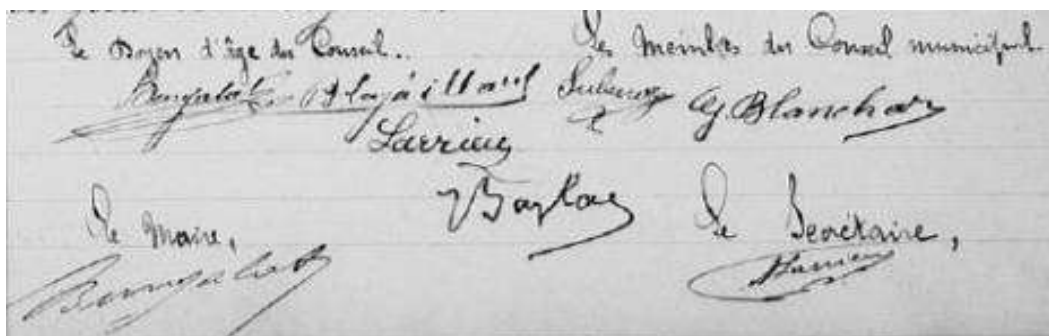 Le Doyen d'âge du Conseil. Les Membres du Conseil municipal.
Bengalat Blanchar
Larrieu
Baylac
Le Maire, Le Secrétaire,
Bengalat Larrieu